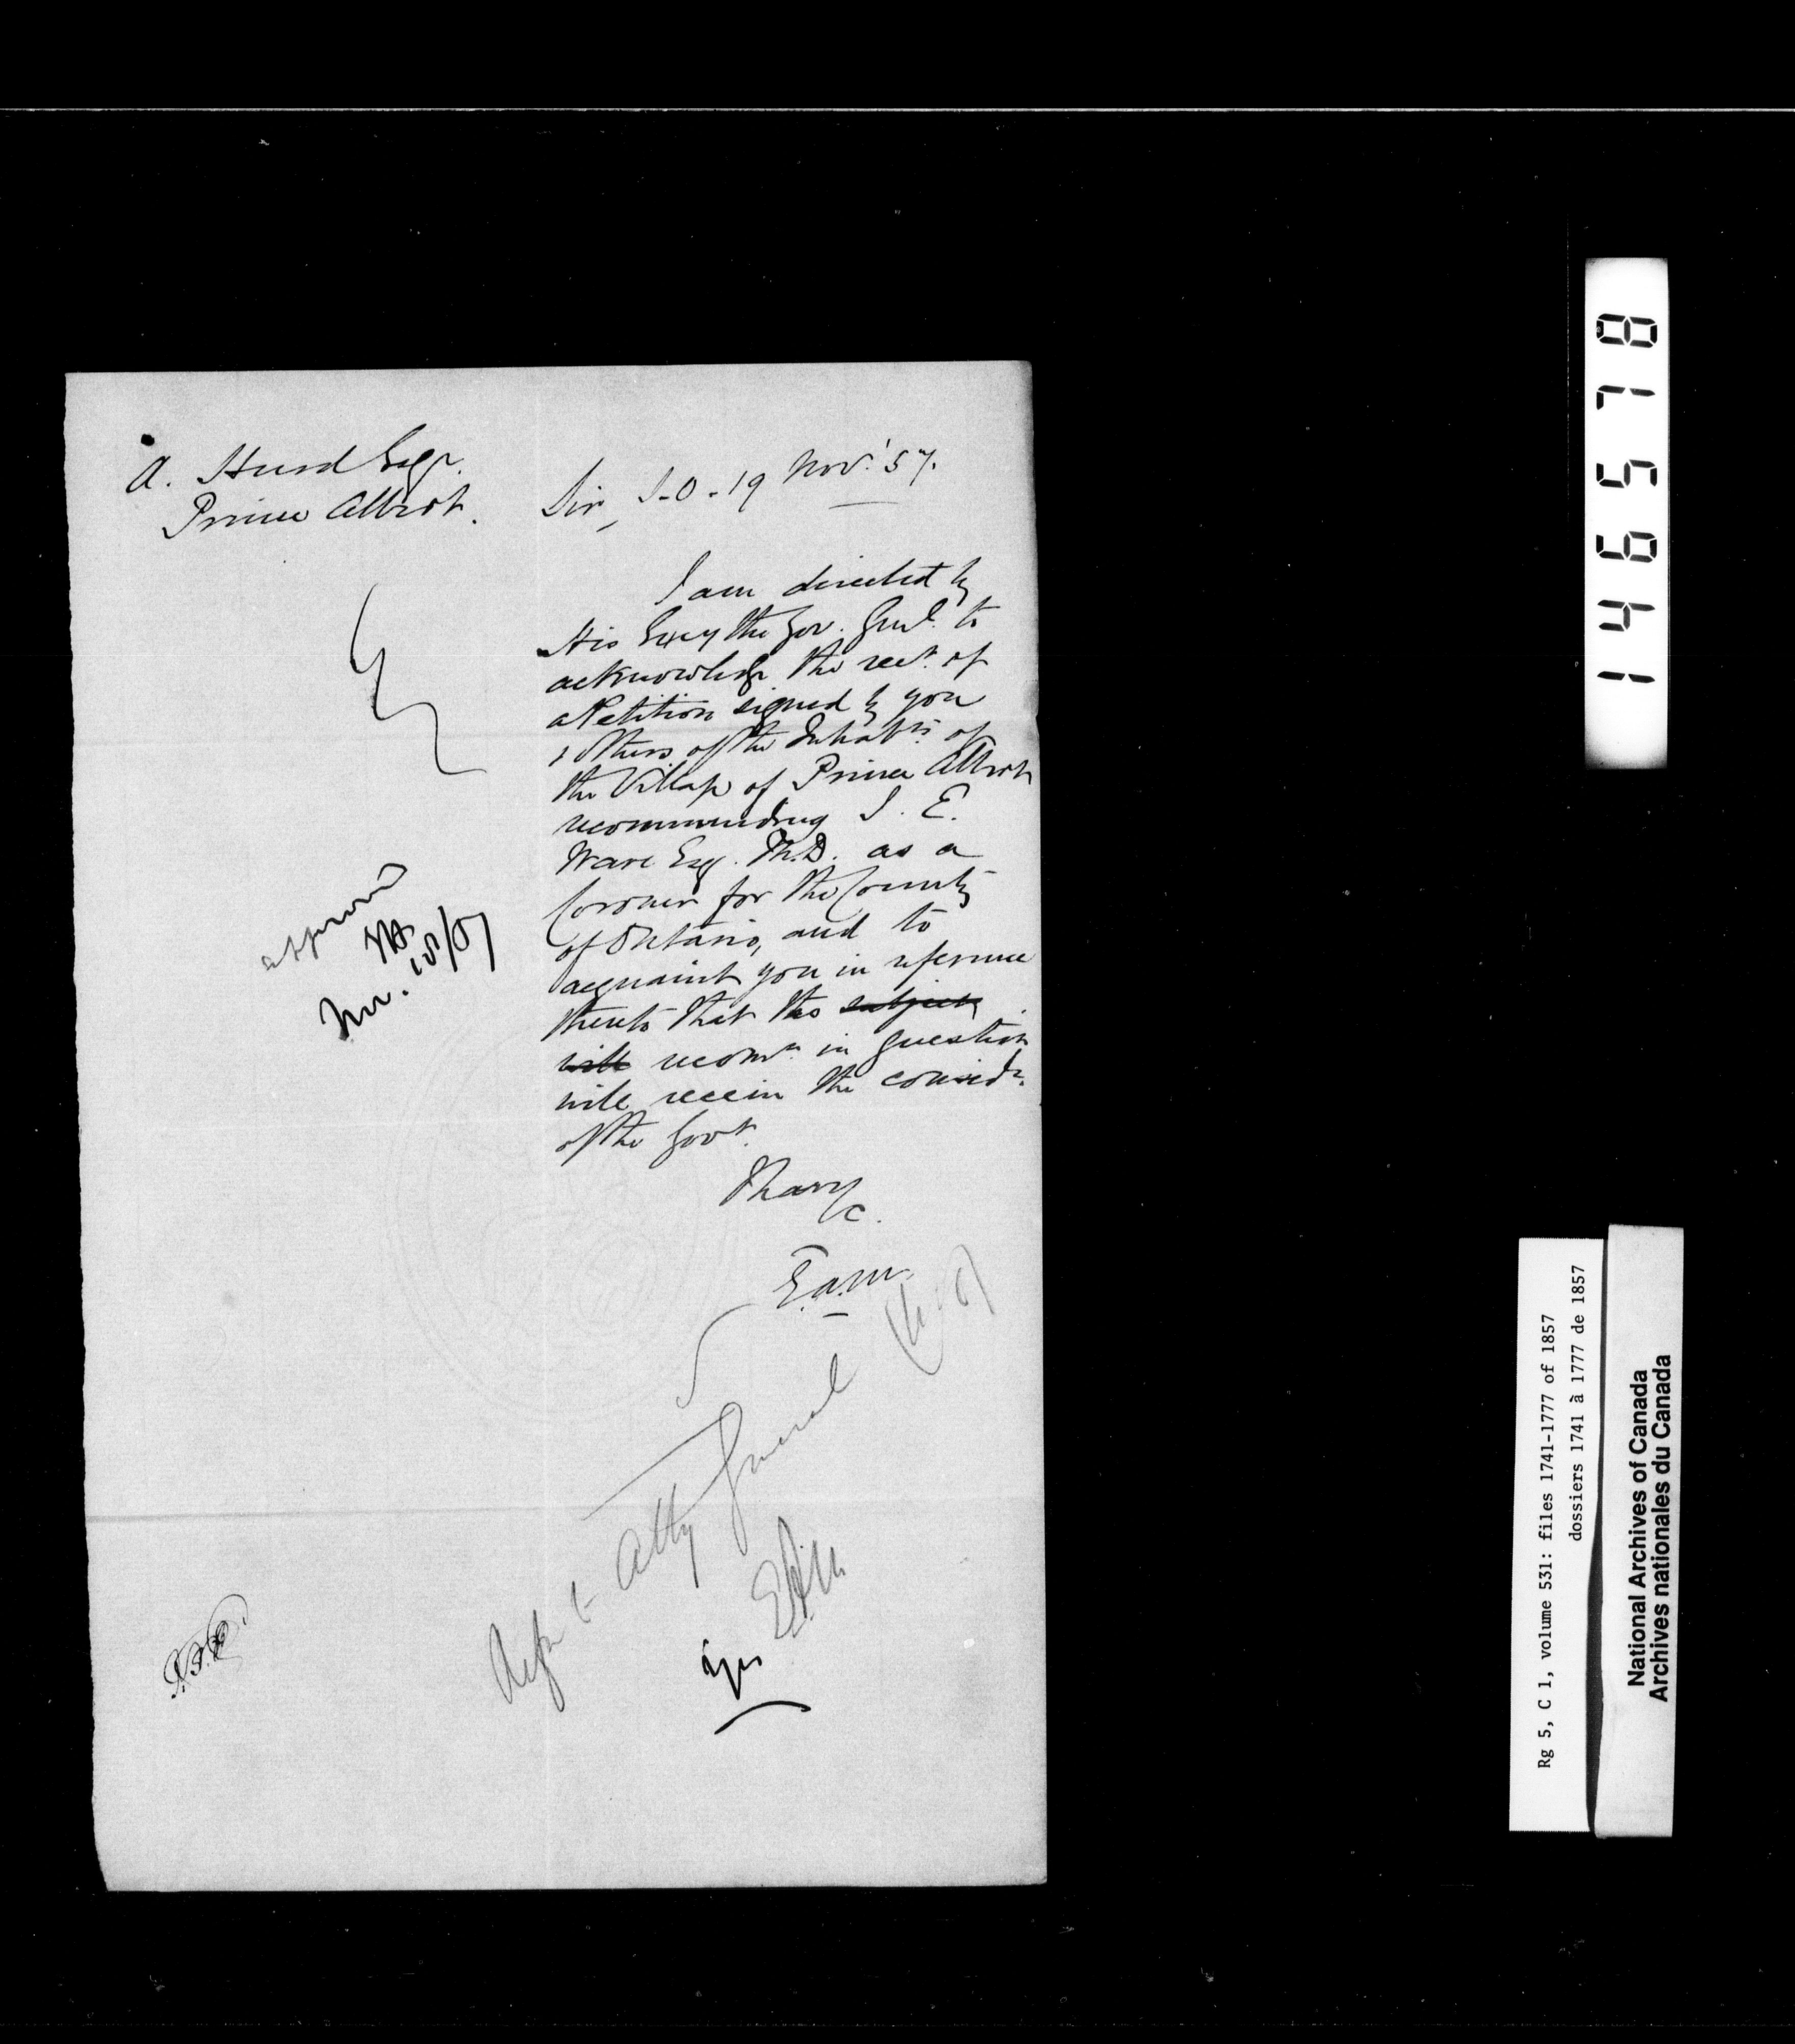 A. Hurd Esqr.
Prince Albert.
Sir, S.O. 19 Nov. '57.
I am directed by
His Excy the Gov. Genl. to
acknowledge the rect. of
a Petition signed by you
& others of the Inhabts. of
the Village of Prince Albert
recommending J. E.
Ware Esq. M.D. as a
Coroner for the County
of Ontario, and to
acquaint you in reference
thereto that the subject
will recomn. in question
will receive the considn.
of the Govt.
I have &c.
E.A.M.
approved
Nov.
Refer to Atty General
E.A.M.
yes
146578
Rg 5, C 1, volume 531: files 1741-1777 of 1857
dossiers 1741 à 1777 de 1857
National Archives of Canada
Archives nationales du Canada